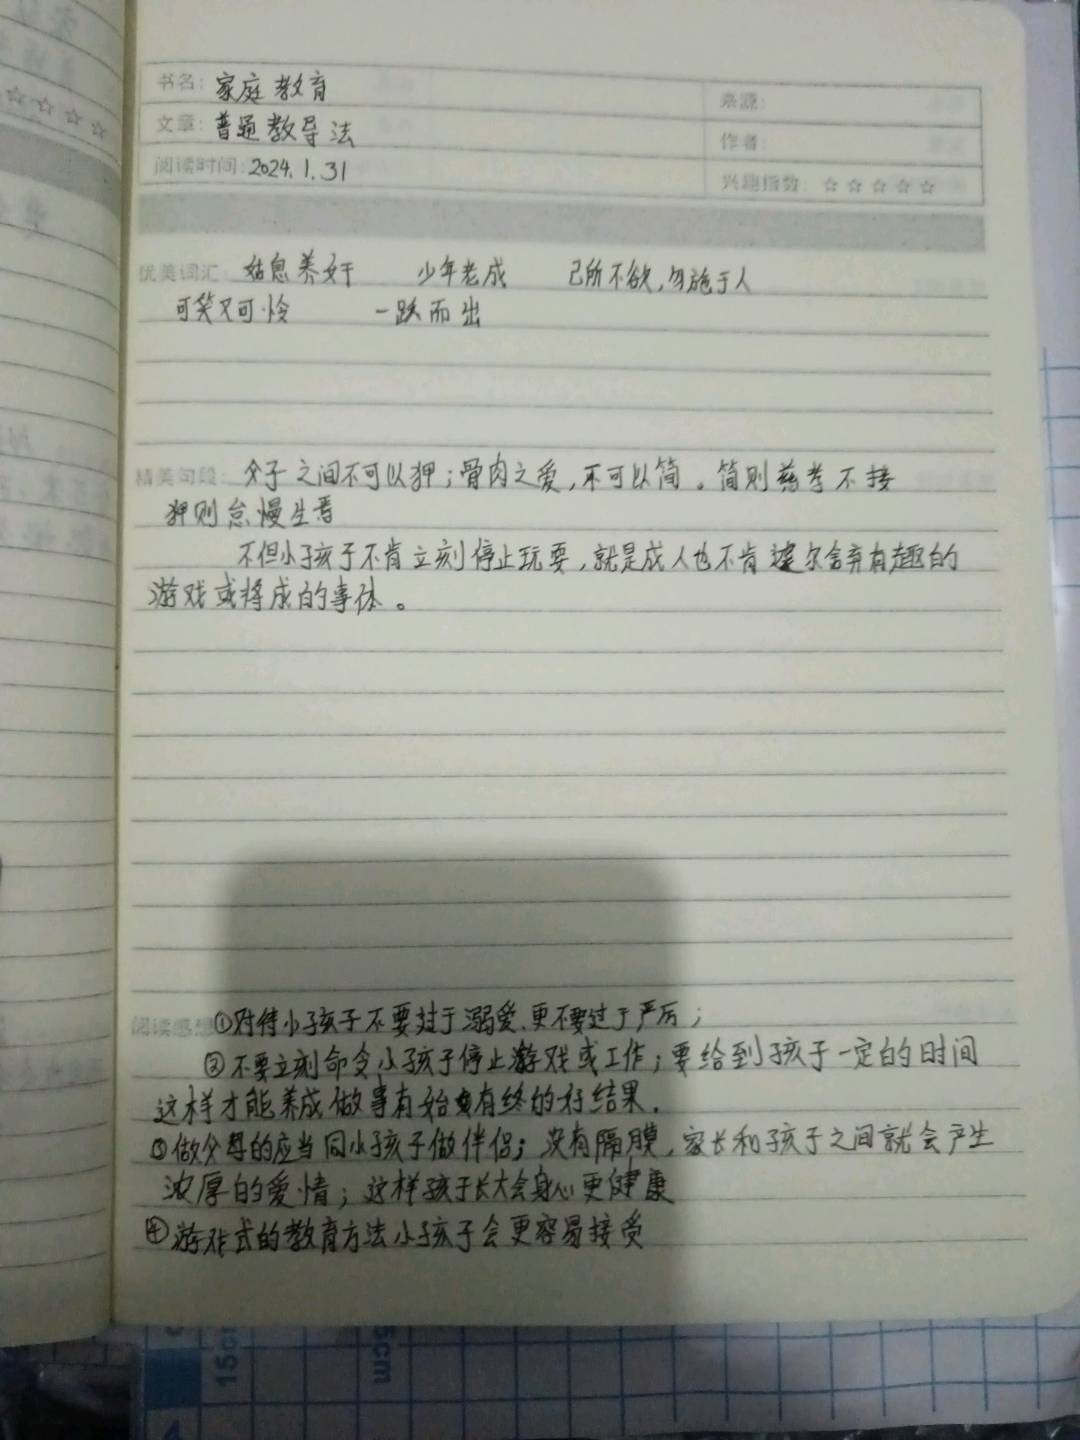 书名: 家庭教育
来源:
文章: 普通教导法
作者:
阅读时间: 2024.1.31
兴趣指数: ☆☆☆☆☆
优美词汇: 姑息养奸 少年老成 己所不欲,勿施于人
可笑又可怜 一跃而出
精美句段: 父子之间不可以狎;骨肉之爱,不可以简。简则慈孝不接
狎则怠慢生焉
不但小孩子不肯立刻停止玩耍,就是成人也不肯遽尔舍弃有趣的
游戏或将成的事体。
阅读感想 ①对待小孩子不要过于溺爱.更不要过于严厉;
②不要立刻命令小孩子停止游戏或工作;要给到孩子一定的时间
这样才能养成做事有始有终的好结果.
③做父母的应当同小孩子做伴侣;没有隔膜,家长和孩子之间就会产生
浓厚的爱情;这样孩子长大会身心更健康
④游戏式的教育方法小孩子会更容易接受
15cm
5cm